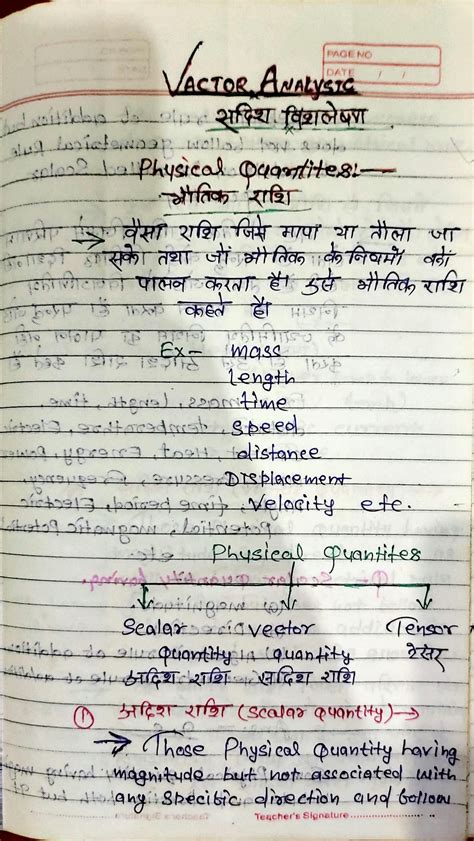 PAGE NO
DATE / /
VACTOR ANALYSIC
सदिश विशलेषण
Physical Quantites:—
भौतिक राशि
→ वैसा राशि जिसे मापा या तौला जा
सके। तथा जो भौतिक के नियमों का
पालन करता है। उसे भौतिक राशि
कहते हैं।
Ex- mass
length
time
speed
distance
DISplacement
Velocity etc.
Physical Quantites
Scalar Vector Tensor
quantity quantity टेंसर
अदिश राशि सदिश राशि
① अदिश राशि (Scalar quantity) →
→ Those Physical Quantity having
magnitude but not associated with
any specific direction and follow
Teacher's Signature